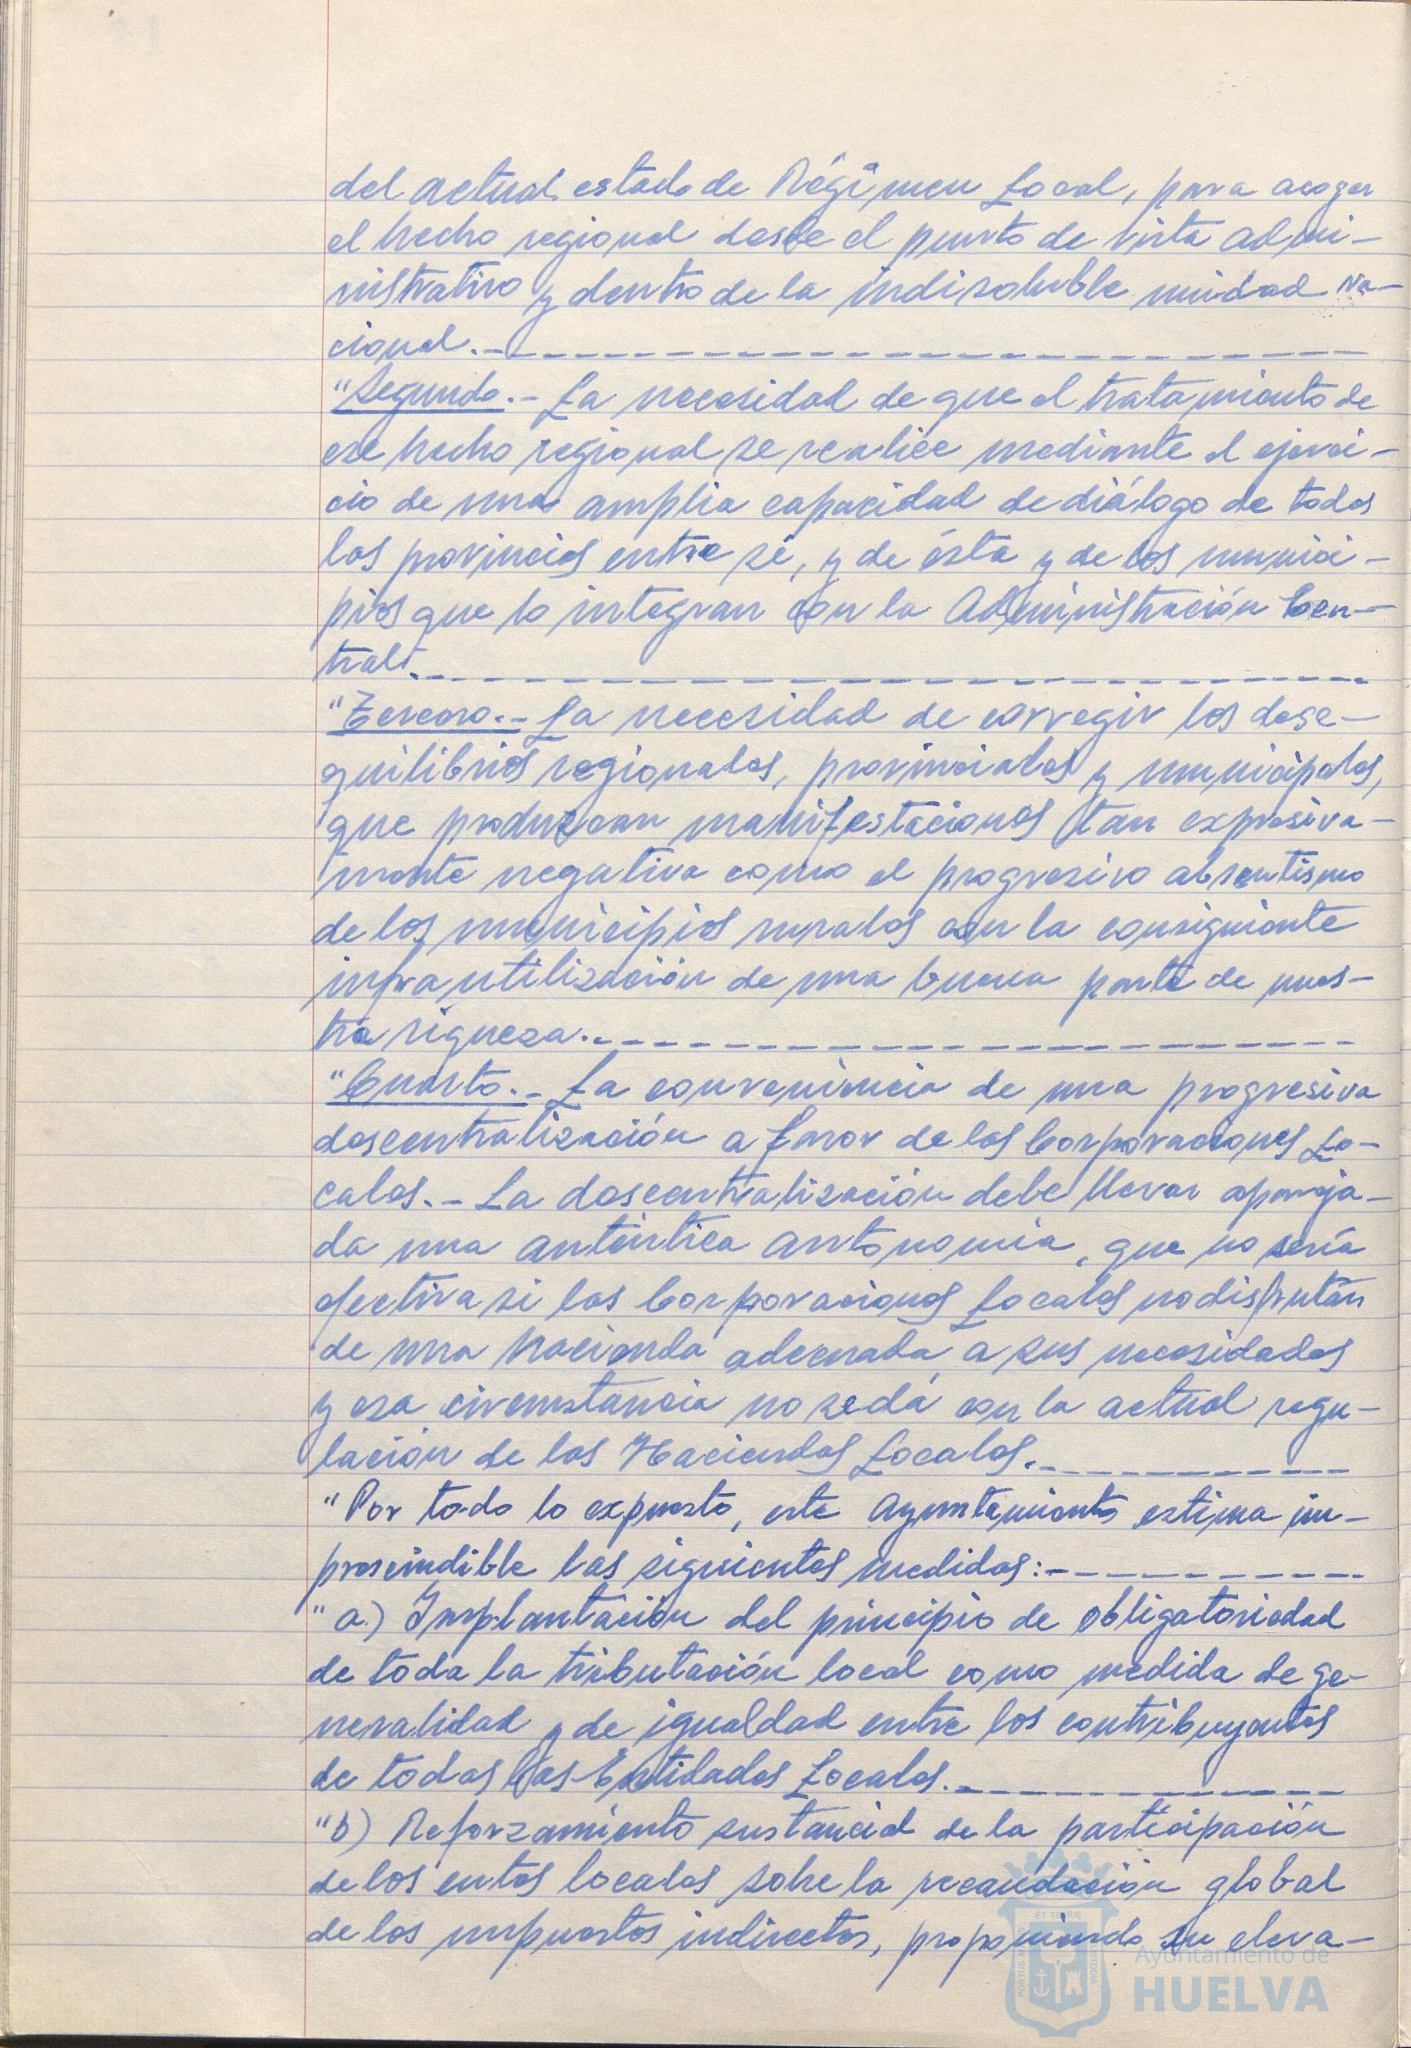 del actual estado de Régimen Local, para acoger
el hecho regional desde el punto de vista admi-
nistrativo y dentro de la indisoluble unidad Na-
cional.-
"Segundo.- La necesidad de que el tratamiento de
ese hecho regional se realice mediante el ejerci-
cio de una amplia capacidad de diálogo de todas
las provincias entre sí, y de ésta y de los munici-
pios que la integran con la Administración Cen-
tral.
"Tercero.- La necesidad de corregir los dese-
quilibrios regionales, provinciales y municipales,
que produzcan manifestaciones tan expresiva-
mente negativa como el progresivo absentismo
de los municipios rurales con la consiguiente
infrautilización de una buena parte de nues-
tra riqueza.-
"Cuarto.- La conveniencia de una progresiva
descentralización a favor de las Corporaciones Lo-
cales.- La descentralización debe llevar apareja-
da una auténtica autonomía, que no sería
efectiva si las Corporaciones Locales no disfrután
de una hacienda adecuada a sus necesidades
y esa circunstancia no se dá con la actual regu-
lación de las Haciendas Locales.
"Por todo lo expuesto, este Ayuntamiento estima im-
prescindible las siguientes medidas:-
"a) Implantación del principio de obligatoriedad
de toda la tributación local como medida de ge-
neralidad y de igualdad entre los contribuyentes
de todas las Entidades Locales.-
"b) Reforzamiento sustancial de la participación
de los entes locales sobre la recaudación global
de los impuestos indirectos, proponiendo su eleva-
Ayuntamiento de
HUELVA